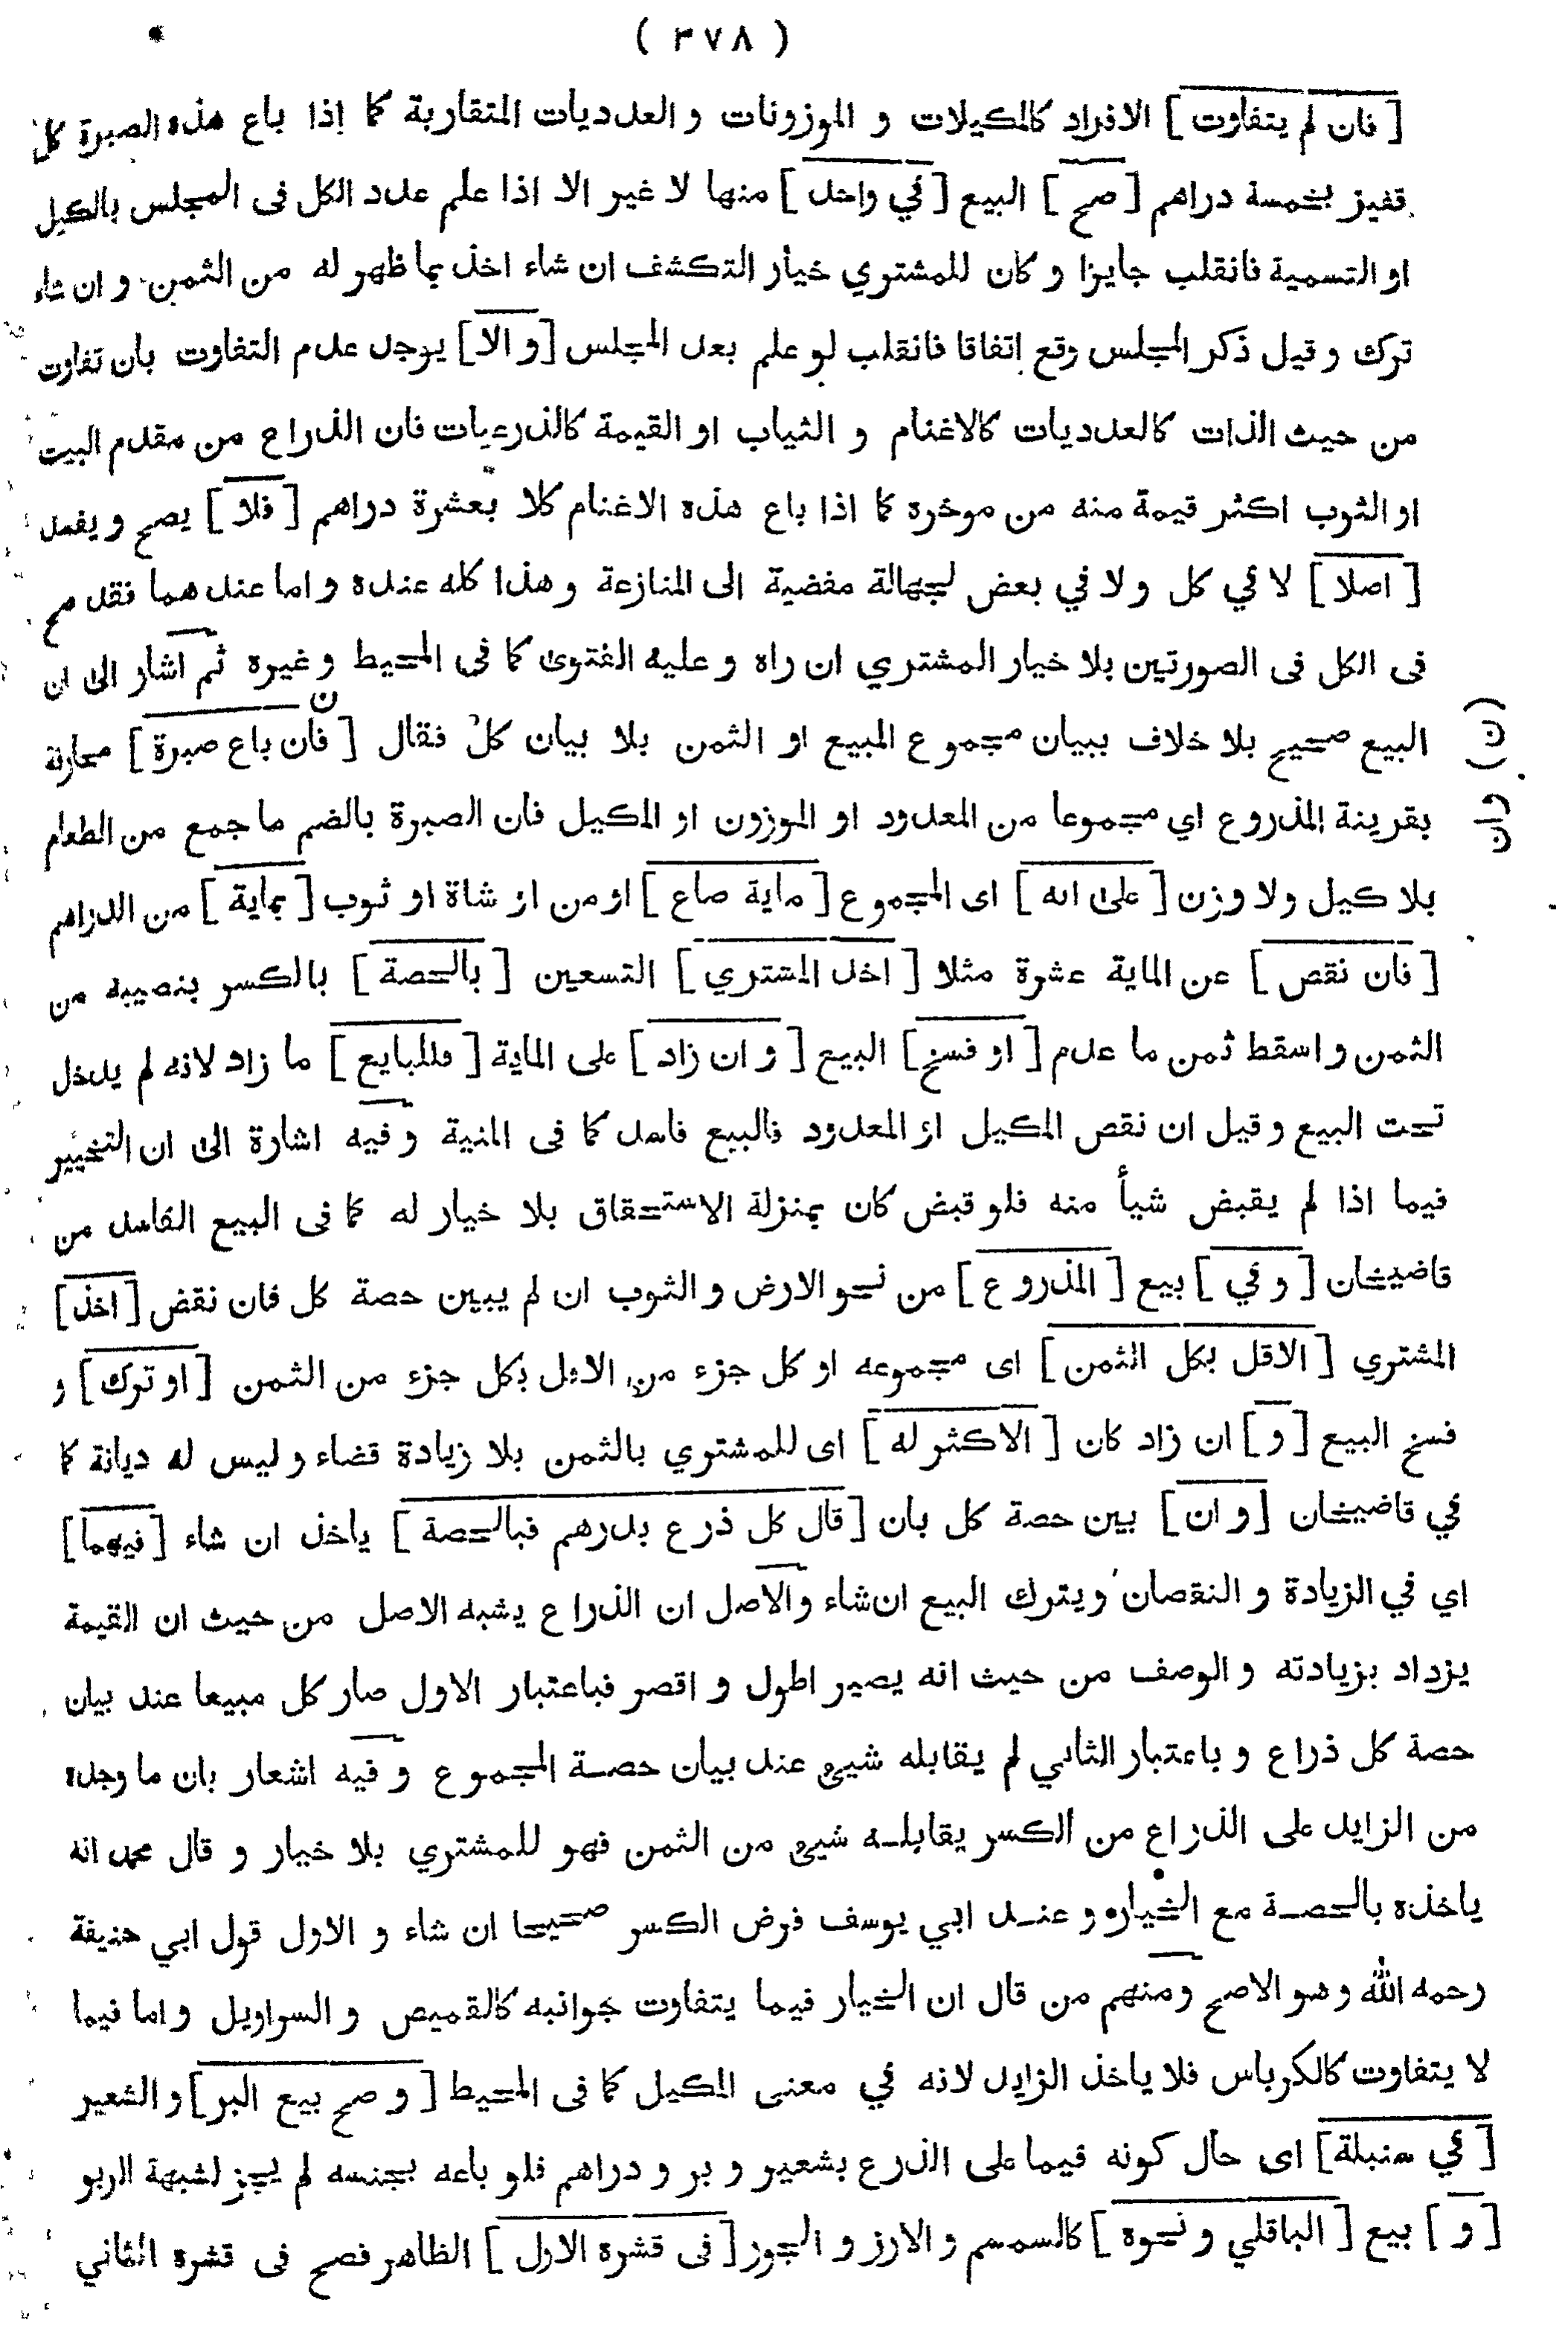 ( ٣٧٨ )
[ فان لم يتفاوت ] الافراد كالمكيلات و الموزونات و العدديات المتقاربة كما إذا باع هذه الصبرة كل
قفيز بخمسة دراهم [ صح ] البيع [ في واحد ] منها لا غير الا اذا علم عدد الكل فى المجلس بالكيل
او التسمية فانقلب جايزا و كان للمشتري خيار التكشف ان شاء اخذ بما ظهر له من الثمن و ان شاء
ترك و قيل ذكر المجلس وقع اتفاقا فانقلب لو علم بعد المجلس [ و الا ] يوجد عدم التفاوت بان تفاوت
من حيث الذات كالعدديات كالاغنام و الثياب او القيمة كالذرعيات فان الذراع من مقدم البيت
او الثوب اكثر قيمة منه من موخره كما اذا باع هذه الاغنام كلا بعشرة دراهم [ فلا ] يصح و يفسد
[ اصلا ] لا في كل و لا في بعض لجهالة مفضية الى المنازعة و هذا كله عنده و اما عندهما فقد صح
فى الكل فى الصورتين بلا خيار المشتري ان راه و عليه الفتوى كما فى المحيط و غيره ثم اشار الى ان
البيع صحيح بلا خلاف ببيان مجموع المبيع او الثمن بلا بيان كل فقال [ فان باع صبرة ] مجازنة
بقرينة المذروع اي مجموعا من المعدود او الموزون او المكيل فان الصبرة بالضم ما جمع من الطعام
بلا كيل ولا وزن [ على انه ] اى المجموع [ ماية صاع ] او من او شاة او ثوب [ بماية ] من الدراهم
[ فان نقص ] عن الماية عشرة مثلا [ اخذ المشتري ] التسعين [ بالحصة ] بالكسر بنصيبه من
الثمن و اسقط ثمن ما عدم [ او فسخ ] البيع [ و ان زاد ] على الماية [ فللبايع ] ما زاد لانه لم يدخل
تحت البيع و قيل ان نقص المكيل او المعدود فالبيع فاسد كما فى المنية و فيه اشارة الى ان التخيير
فيما اذا لم يقبض شيأ منه فلو قبض كان بمنزلة الاستحقاق بلا خيار له كما فى البيع الفاسد من
قاضيخان [ و في ] بيع [ المذروع ] من نحو الارض و الثوب ان لم يبين حصة كل فان نقض [ اخذ ]
المشتري [ الاقل بكل الثمن ] اى مجموعه او كل جزء من الاقل بكل جزء من الثمن [ او ترك ] و
فسخ البيع [ و ] ان زاد كان [ الاكثر له ] اى للمشتري بالثمن بلا زيادة قضاء و ليس له ديانة كما
في قاضيخان [ و ان ] بين حصة كل بان [ قال كل ذرع بدرهم فبالحصة ] ياخذ ان شاء [ فيهما ]
اي في الزيادة و النقصان و يترك البيع ان شاء والاصل ان الذراع يشبه الاصل من حيث ان القيمة
يزداد بزيادته و الوصف من حيث انه يصير اطول و اقصر فباعتبار الاول صار كل مبيعا عند بيان
حصة كل ذراع و باعتبار الثاني لم يقابله شيئ عند بيان حصة المجموع و فيه اشعار بان ما وجده
من الزايد على الذراع من الكسر يقابله شيئ من الثمن فهو للمشتري بلا خيار و قال محمد انه
ياخذه بالحصة مع الخياره و عند ابي يوسف فرض الكسر صحيحا ان شاء و الاول قول ابي حنيفة
رحمه الله و هو الاصح ومنهم من قال ان الخيار فيما يتفاوت جوانبه كالقميص و السراويل و اما فيما
لا يتفاوت كالكرباس فلا ياخذ الزايد لانه في معنى المكيل كما فى المحيط [ و صح بيع البر ] و الشعير
[ في سنبلة ] اى حال كونه قيما على الذرع بشعير و بر و دراهم فلو باعه بجنسه لم يجز لشبهة الربو
[ و ] بيع [ الباقلي و نحوه ] كالسمسم و الارز و الجوز [ فى قشره الاول ] الظاهر فصح فى قشره الثاني
ن
( ن )
وان